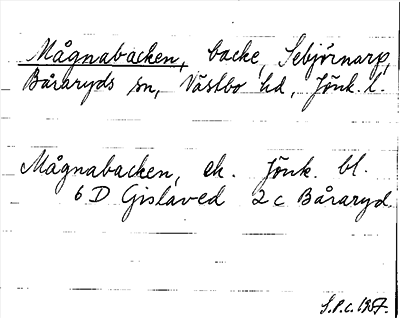 Mågnabacken, backe, Sebjörnarp,
Båraryds sn, Västbo hd, Jönk. l.
Mågnabacken, ek. Jönk. bl.
6 D Gislaved 2 c Båraryd.
S.P.C. 1957.